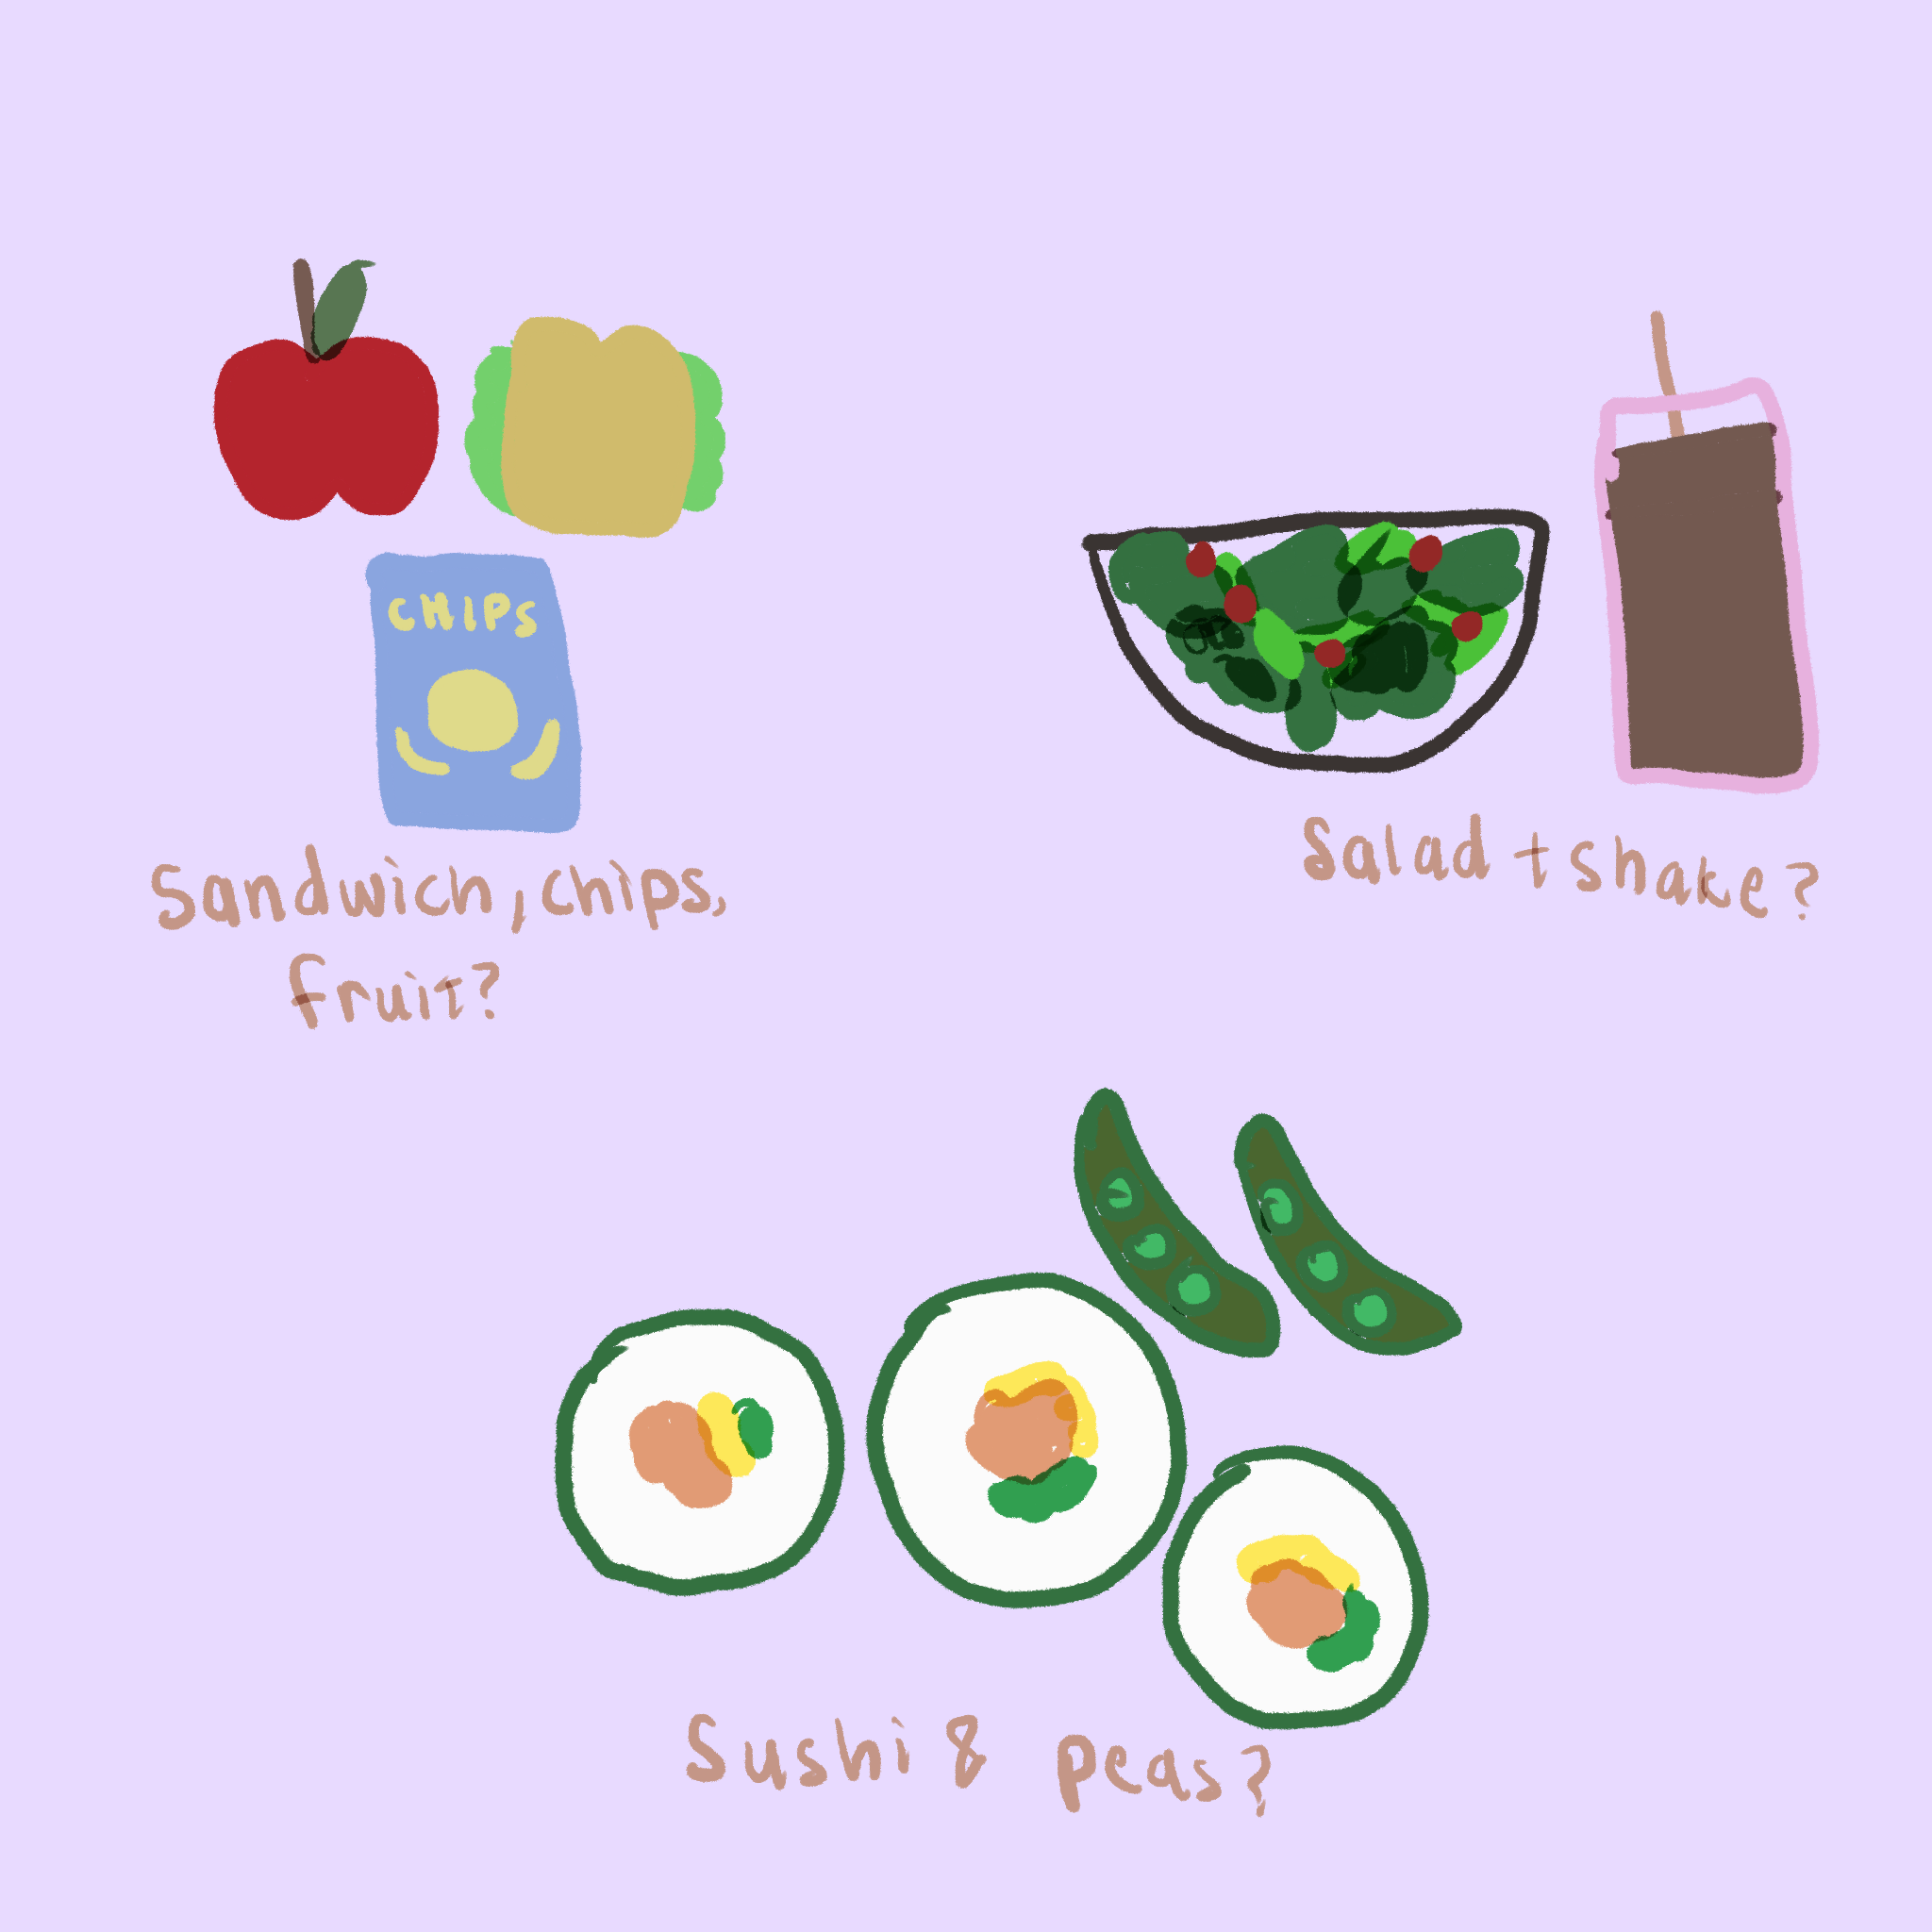 CHIPS
Sandwich, chips,
fruit?
Salad + shake?
Sushi & peas?